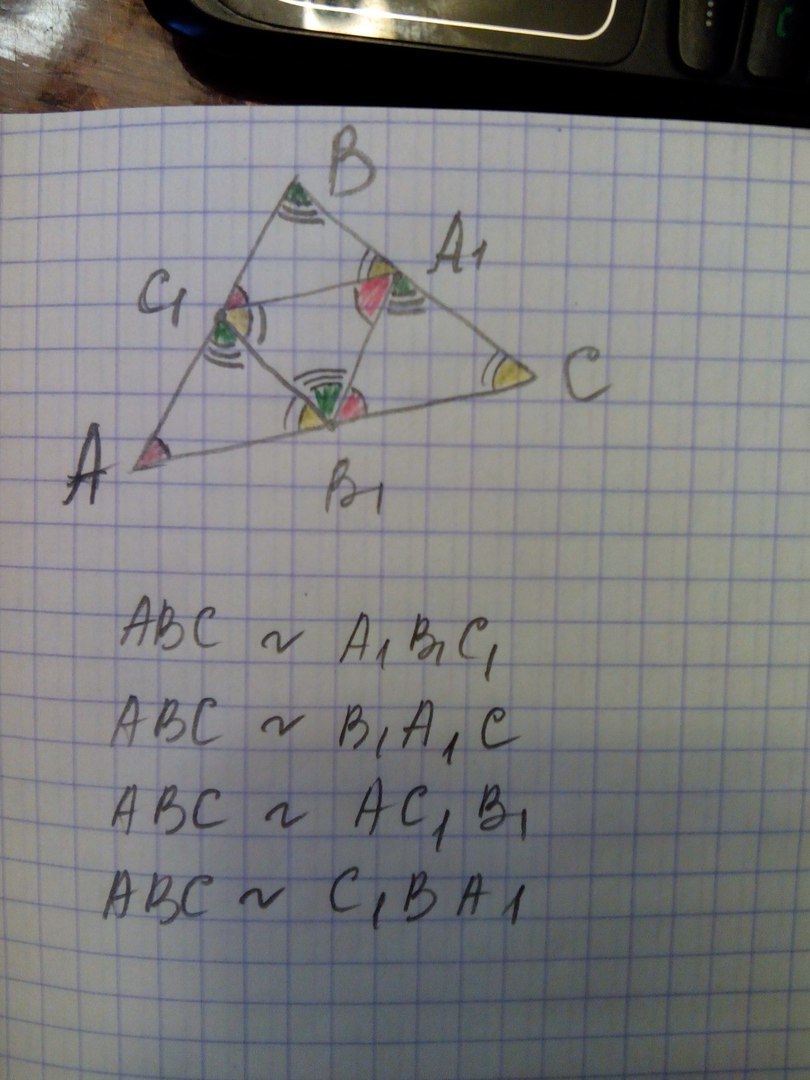 B
A₁
C₁
C
A
B₁
ABC ~ A₁B₁C₁
ABC ~ B₁A₁C
ABC ~ AC₁B₁
ABC ~ C₁BA₁